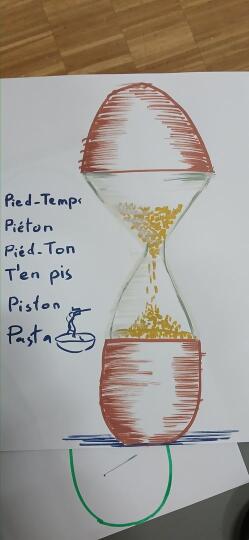 Pied-Temps
Piéton
Piéd-Ton
T'en pis
Piston
Pasta